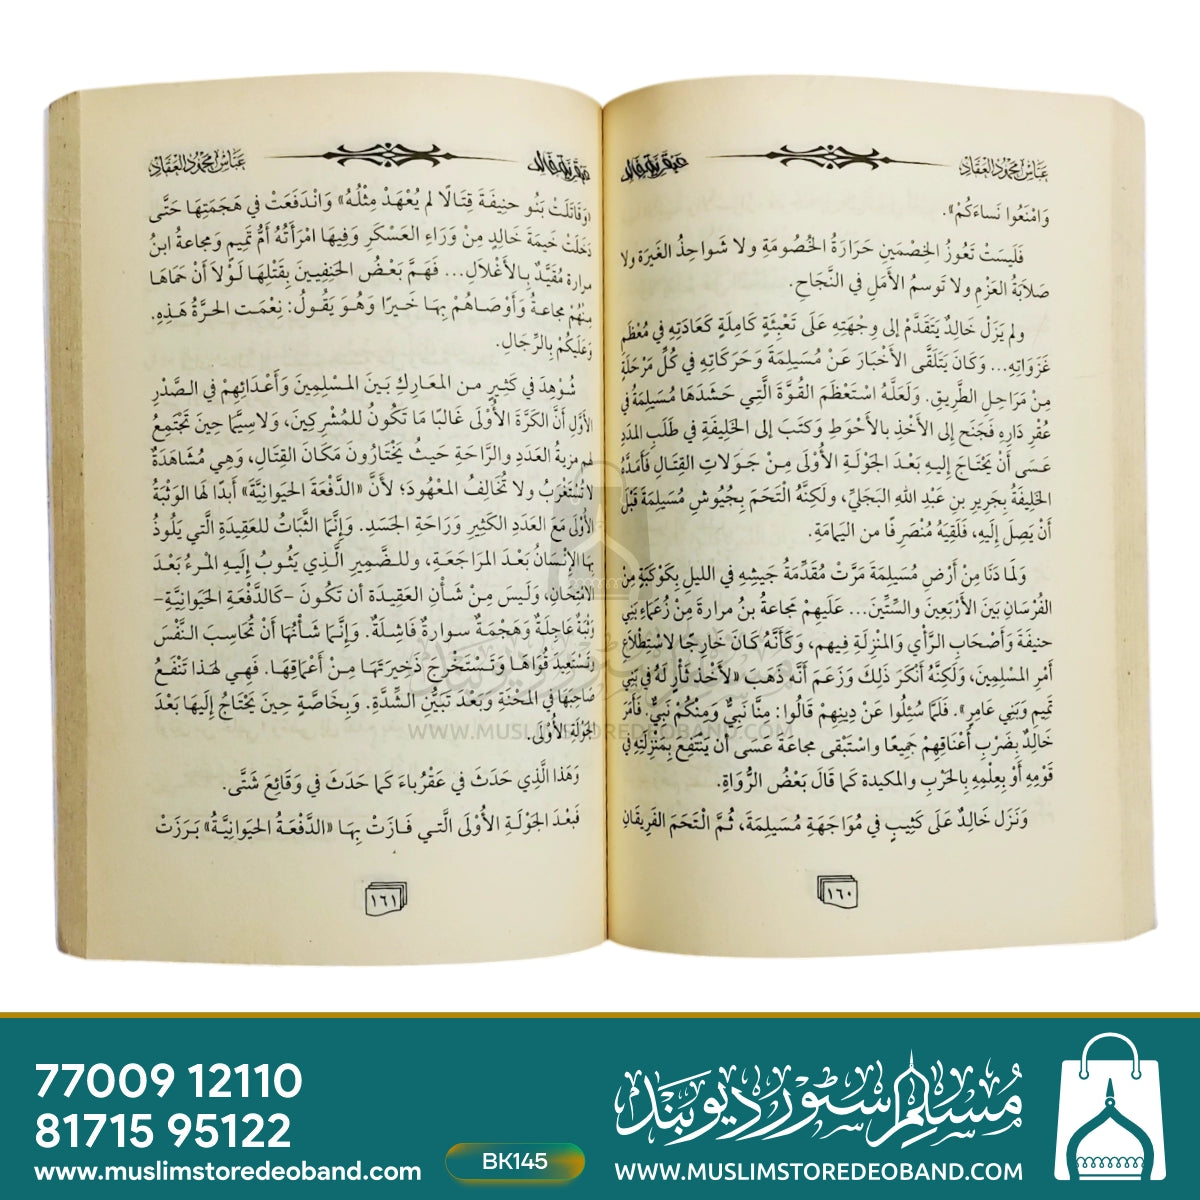 عباس محمود العقاد
عبقرية خالد
وَامْنَعُوا نَساءَكُمْ».
فَلَيسَتْ تَعُوزُ الخِصْمَينِ حَرَارَةُ الخُصُومَةِ ولا شَواحِذُ الغَيرَة ولا
صَلابَةُ العَزْمِ ولا تَوسمُ الأَمَلِ في النَّجَاحِ.
ولم يَزَل خَالِدٌ يَتَقَدَّمُ إلى وِجْهَتِهِ عَلَى تَعْبِئَةٍ كَامِلَةٍ كَعَادَتِهِ في مُعْظَمِ
غَزَوَاتِهِ... وَكَانَ يَتَلَقَّى الأَخْبَارَ عَنْ مُسَيلِمَةَ وَحَرَكَاتِهِ في كُلِّ مَرْحَلَةٍ
مِنْ مَرَاحِلِ الطَّرِيقِ. وَلَعَلَّهُ اسْتَعْظَمَ القُوَّةَ الَّتِي حَشَدَهَا مُسَيلِمَةُ في
عُقْرِ دَارِهِ فَجَنَح إلى الأَخْذِ بالأَحْوَطِ وَكَتَبَ إلى الخَلِيفَةِ في طَلَبِ المَدَدِ
عَسَى أَنْ يَحْتَاجَ إلَيهِ بَعْدَ الجَوْلَةِ الأُولَى مِـنْ جَـولَاتِ القِتَالِ فَأَمَدَّهُ
الخَلِيفَةُ بِجَرِيرِ بنِ عَبْدِ اللهِ البَجَلِيِّ، ولَكِنَّهُ التَحَمَ بِجُيُوشِ مُسَيلِمَةَ قَبْلَ
أَنْ يَصلَ إلَيهِ، فَلَقِيَهُ مُنْصَرِفًا من اليَمامَةِ.
وَلَما دَنَا مِنْ أَرْضِ مُسَيلِمَةَ مَرَّتْ مُقَدِّمَةُ جَيشِهِ في الليلِ بِكَوْكَبَةٍ مِنَ
الفُرْسَانِ بَينَ الأَرْبَعِينَ والسِّتِّينَ... عَلَيهِمْ مجاعةُ بنُ مرارةَ مِنْ زُعَمَاءِ بَنِي
حنيفةَ وَأَصْحَابِ الرَّأْيِ وَالمَنْزِلَةِ فِيهم، وَكَأَنَّهُ كَانَ خَارِجًا لاسْتِطْلَاعِ
أَمْرِ المُسْلِمِينَ، وَلَكِنَّهُ أَنْكَرَ ذَلِكَ وَزَعَمَ أَنَّه ذَهَبَ «لأَخْذِ ثَأْرٍ لَهُ في بَنِي
تَمِيمٍ وَبَنِي عَامِرٍ». فَلَمَّا سُئِلُوا عَنْ دِينِهِمْ قَالُوا: مِنَّا نَبِيٌّ وَمِنْكُمْ نَبِيٌّ. فَأَمَرَ
خَالِدٌ بِضَرْبِ أَعْنَاقِهِمْ جَمِيعًا واسْتَبْقَى مجاعةَ عَسى أَنْ يَنْتَفِعَ بِمَنْزِلَتِهِ في
قَوْمِهِ أَوْ بِعِلْمِهِ بِالحَرْبِ والمكيدة كَما قَالَ بَعْضُ الرُّوَاةِ.
وَنَزَل خَالِدٌ عَلَى كَثِيبٍ في مُوَاجَهَةِ مُسَيلِمَةَ، ثُمَّ الْتَحَمَ الفَرِيقَانِ
١٦٠
عباس محمود العقاد
عبقرية خالد
«وَقَاتَلَتْ بَنُو حنِيفَةَ قِتَالًا لم يُعْهَدْ مِثْلُهُ» وَانْدَفَعَتْ في هَجَمَتِهَا حَتَّى
دَخَلَتْ خَيمَةَ خَالِدٍ مِنْ وَرَاءِ العَسْكَرِ وَفِيهَا امْرَأَتُهُ أُمُّ تَمِيمٍ وَمجاعةُ ابنُ
مرارة مُقَيَّدٌ بِالأَغْلَالِ... فَهَمَّ بَعْضُ الحَنِفِيينَ بِقَتْلِهَا لَوْلَا أَنْ حَمَاهَا
مِنْهُمْ مجاعةُ وَأَوْصَاهُمْ بِهَا خَيرًا وَهُوَ يَقُولُ: نِعْمَت الحرَّةُ هَذِهِ.
وَعَلَيكُمْ بِالرِّجَالِ.
شُوْهِدَ في كَثِيرٍ من المَعَارِكِ بَينَ المُسْلِمِينَ وَأَعْدَائِهِمْ في الصَّدْرِ
الأَوَّلِ أَنَّ الكَرَّةَ الأُوْلَى غَالبًا مَا تَكُونُ للمُشْرِكِينَ، وَلاسِيَّما حِينَ تَجْتَمِعُ
لهم مزيةُ العَدَدِ والرَّاحَةِ حَيثُ يَخْتَارُونَ مَكَانَ القِتَالِ، وَهِيَ مُشَاهَدَةٌ
لا تُسْتَغْرَبُ ولا تُخَالِفُ المَعْهُودَ؛ لأَنَّ «الدَّفْعَةَ الحَيوانِيَّةَ» أَبَدًا لَها الوَثْبَةُ
الأُوْلَى مَعَ العَدَدِ الكَثِيرِ وَرَاحَةِ الجَسَدِ. وَإِنَّمَا الثَّبَاتُ للعَقِيدَةِ الَّتِي يَلُوذُ
بِهَا الإِنْسَانُ بَعْدَ المرَاجَعَةِ، وللضَّمِيرِ الَّذِي يَثُوبُ إلَيهِ المَرءُ بَعْدَ
الامْتِحَانِ، وَلَيسَ مِنْ شَأْنِ العَقِيدَة أن تَكُونَ -كَالدَّفْعَةِ الحَيوانِيَّةِ-
وَثْبَةً عَاجِلَةً وَهَجْمَةً سوارةً فَاشِلَةً. وَإِنَّمَا شَأْنُهَا أَنْ تُحَاسِبَ النَّفْسَ
وَتَسْتَعِيدَ قُوَاهَا وَتَسْتَخْرِجَ ذَخِيرَتَهَا مِنْ أَعْمَاقِهَا. فَهِي لهذا تَنْفَعُ
صَاحِبَهَا في المحْنَةِ وَبَعْدَ تَبَيُّنِ الشِّدَّةِ. وَبِخَاصَّةٍ حِينَ يَحْتَاجُ إِلَيهَا بَعْدَ
الجَوْلَةِ الأُوْلَى.
وَهَذا الَّذِي حَدَثَ في عَقْرُباءَ كَما حَدَثَ في وَقَائِعَ شَتَّى.
فَبَعْدَ الجَوْلَةِ الأُوْلَى الَّتي فَازَتْ بِهَا «الدَّفْعَةُ الحَيوانِيَّةُ» بَرَزَتْ
١٦١
مسلم سٹور دیوبند
WWW.MUSLIMSTOREDEOBAND.COM
77009 12110
81715 95122
www.muslimstoredeoband.com
BK145
مسلم سٹور دیوبند
WWW.MUSLIMSTOREDEOBAND.COM